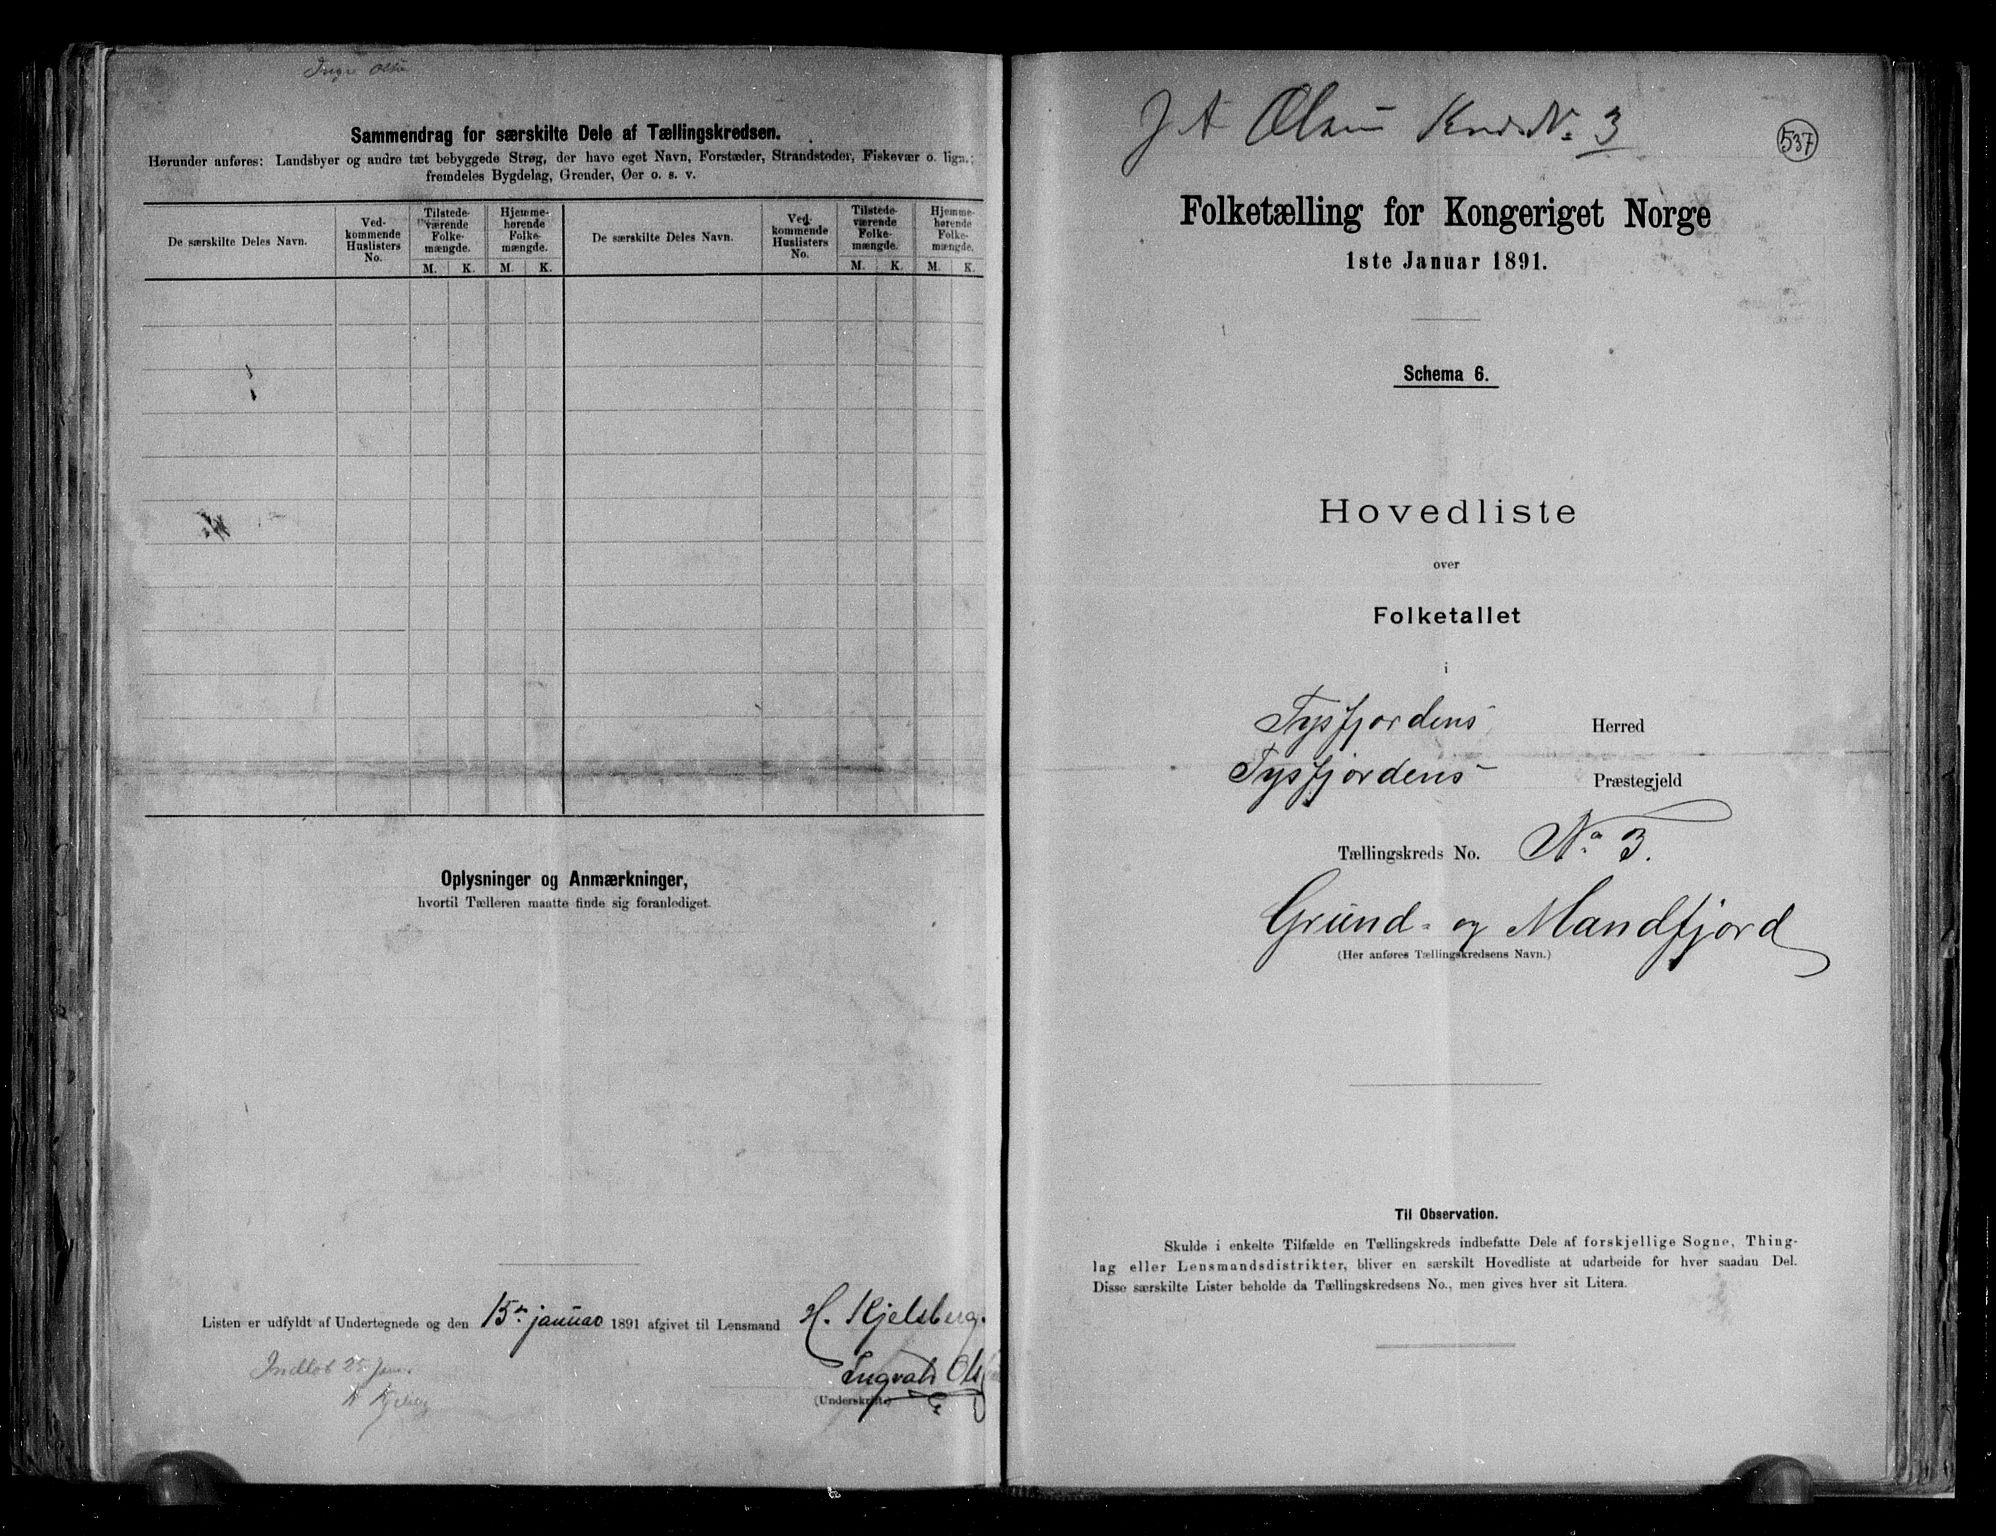 Sammendrag for særskilte Dele af Tællingskredsen.
Herunder anføres: Landsbyer og andre tæt bebyggede Strøg, der have eget Navn, Forstæder, Strandsteder, Fiskevær o. lign.;
fremdeles Bygdelag, Grender, Øer o. s. v.
De særskilte Deles Navn.
Ved-
kommende
Huslisters
No.
Tilstede-
værende
Folke-
mængde.
M. K.
Hjemme-
hørende
Folke-
mængde.
M. K.
De særskilte Deles Navn.
Ved-
kommende
Huslisters
No.
Tilstede-
værende
Folke-
mængde.
M. K.
Hjemme-
hørende
Folke-
mængde.
M. K.
Oplysninger og Anmærkninger,
hvortil Tælleren maatte finde sig foranlediget.
Listen er udfyldt af Undertegnede og den 15de januar 1891 afgivet til Lensmand H. Kjelsberg.
Ingvald
(Underskrift)
25 Jan.
J A Olsen No. 3
537
Folketælling for Kongeriget Norge
1ste Januar 1891.
Schema 6.
Hovedliste
over
Folketallet
i
Tysfjordens Herred
Tysfjordens Præstegjeld
Tællingskreds No. No 3.
Grund- og Mandfjord
(Her anføres Tællingskredsens Navn.)
Til Observation.
Skulde i enkelte Tilfælde en Tællingskreds indbefatte Dele af forskjellige Sogne, Thing-
lag eller Lensmandsdistrikter, bliver en særskilt Hovedliste at udarbeide for hver saadan Del.
Disse særskilte Lister beholde da Tællingskredsens No., men gives hver sit Litera.